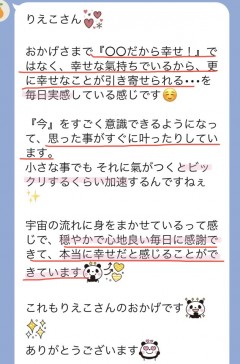 りえこさん💕
おかげさまで『〇〇だから幸せ！』で
はなく、幸せな氣持ちでいるから、更
に幸せなことが引き寄せられる・・・を
毎日実感している感じです☺️
『今』をすごく意識できるようになっ
て、思った事がすぐに叶ったりしてい
ます。
小さな事でも それに氣がつくとビッ
クリするくらい加速するんですねぇ
✨
宇宙の流れに身をまかせているって感
じで、穏やかで心地良い毎日に感謝で
きて、本当に幸せだと感じることがで
きています
これもりえこさんのおかげです
✨✨
ありがとうございます